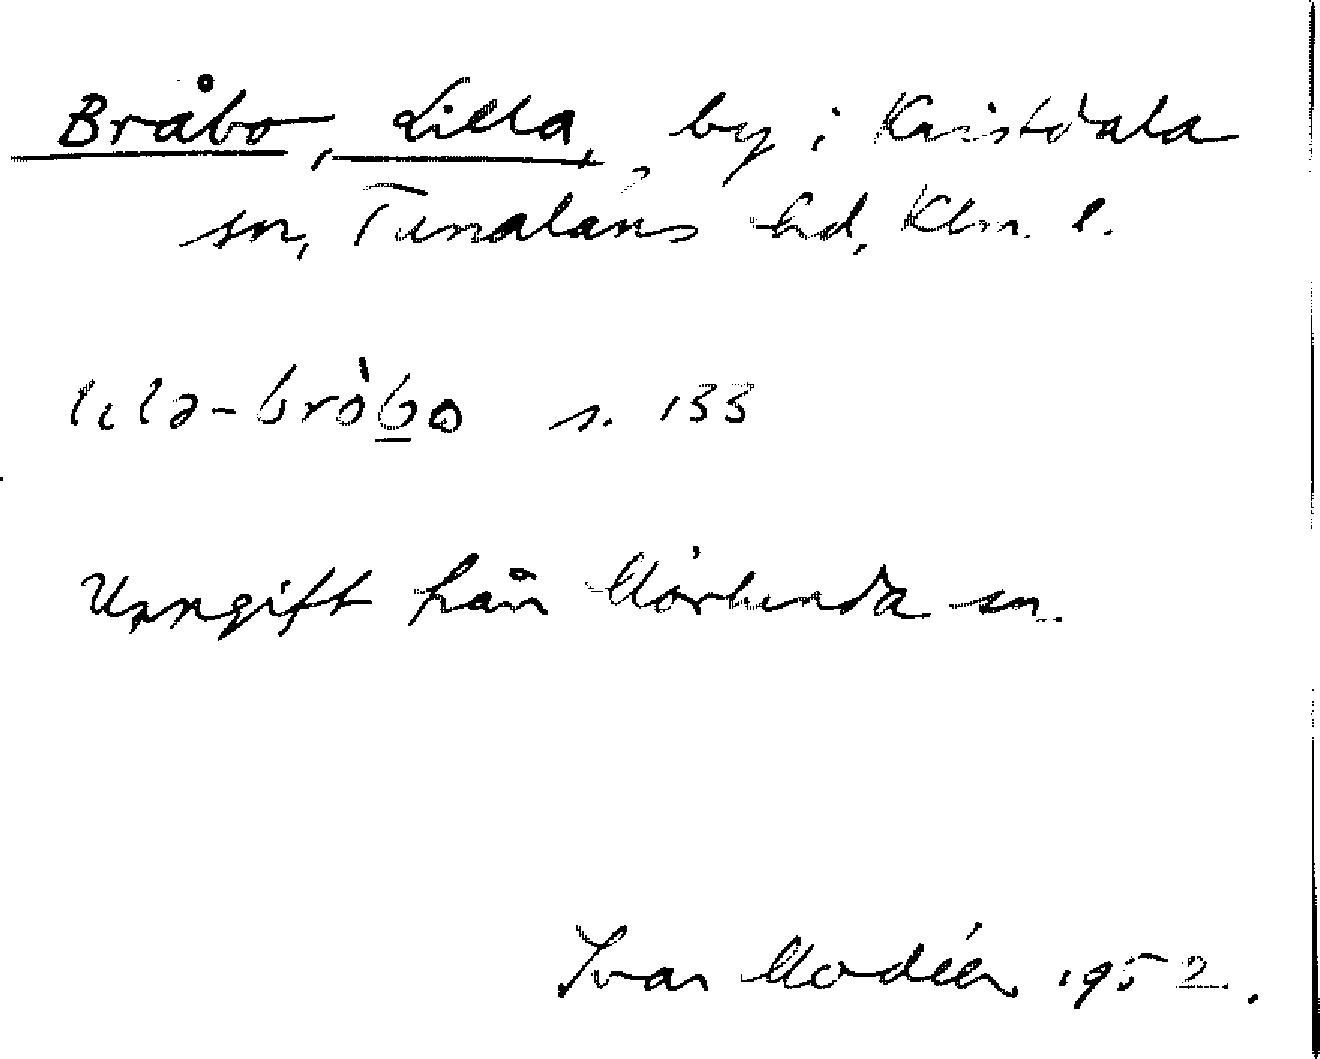 Bråbo, Lilla, by i Kristdala
sn, Tunaläns hd, Klm. l.
lılə-bròbo s. 133
Uppgift från Mörlunda sn.
Ivar Modéer 1952.